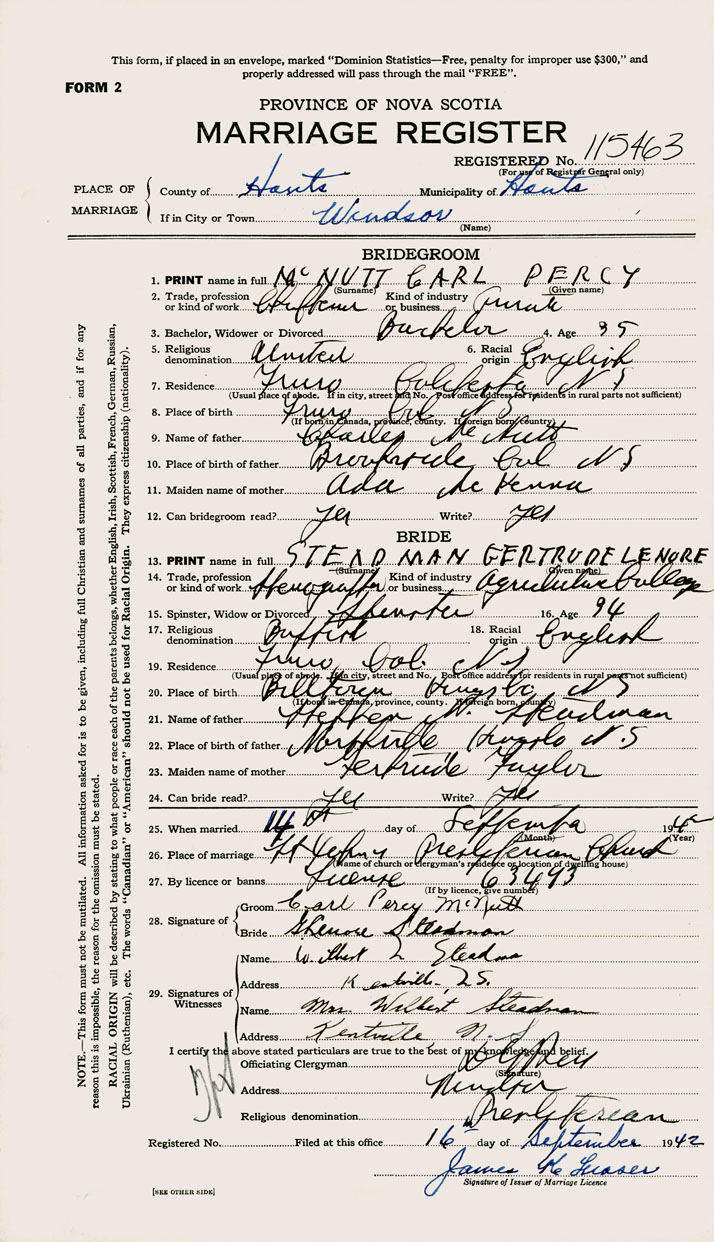 This form, if placed in an envelope, marked "Dominion Statistics—Free, penalty for improper use $300," and
properly addressed will pass through the mail "FREE".
FORM 2
PROVINCE OF NOVA SCOTIA
MARRIAGE REGISTER
REGISTERED No. 115463
(For use of Registrar General only)
PLACE OF MARRIAGE
County of Hants Municipality of Hants
If in City or Town Windsor
(Name)
BRIDEGROOM
1. PRINT name in full McNUTT CARL PERCY
(Surname) (Given name)
2. Trade, profession or kind of work Kind of industry or business
3. Bachelor, Widower or Divorced Bachelor 4. Age 35
5. Religious denomination United 6. Racial origin English
7. Residence Truro Colchester N S
(Usual place of abode. If in city, street and No. Post office address for residents in rural parts not sufficient)
8. Place of birth Truro Col N S
(If born in Canada, province, county. If foreign born, country)
9. Name of father Charles McNutt
10. Place of birth of father Brookside Col N S
11. Maiden name of mother Ada McKenna
12. Can bridegroom read? Yes Write? Yes
BRIDE
13. PRINT name in full STEADMAN GERTRUDE LENORE
(Surname) (Given name)
14. Trade, profession or kind of work Stenographer Kind of industry or business Agriculture College
15. Spinster, Widow or Divorced Spinster 16. Age
17. Religious denomination Baptist 18. Racial origin English
19. Residence Truro Col. N S
(Usual place of abode. If in city, street and No. Post office address for residents in rural parts not sufficient)
20. Place of birth Billtown Kings Co N S
(If born in Canada, province, county. If foreign born, country)
21. Name of father Stephen Steadman
22. Place of birth of father Northville Kings Co N.S
23. Maiden name of mother Gertrude Taylor
24. Can bride read? Yes Write? Yes
25. When married 14 day of September 1942
(Month) (Year)
26. Place of marriage St John's Presbyterian Church
(Name of church or clergyman's residence or location of dwelling house)
27. By licence or banns License 63493
(If by licence, give number)
28. Signature of
Groom Carl Percy McNutt
Bride Steadman
29. Signatures of Witnesses
Name Steadman
Address Kentville N.S.
Name Mrs. Wilbert Steadman
Address Kentville, N. S.
I certify the above stated particulars are true to the best of my knowledge and belief.
Officiating Clergyman
(Signature)
Address Windsor
Religious denomination Presbyterian
Registered No. Filed at this office 16 day of September 1942
James
Signature of Issuer of Marriage Licence
[SEE OTHER SIDE]
NOTE.—This form must not be mutilated. All information asked for is to be given, including full Christian and surnames of all parties, and if for any
reason this is impossible, the reason for the omission must be stated.
RACIAL ORIGIN will be described by stating to what people or race each of the parents belongs, whether English, Irish, Scottish, French, German, Russian,
Ukrainian (Ruthenian), etc. The words "Canadian" or "American" should not be used for Racial Origin. They express citizenship (nationality).